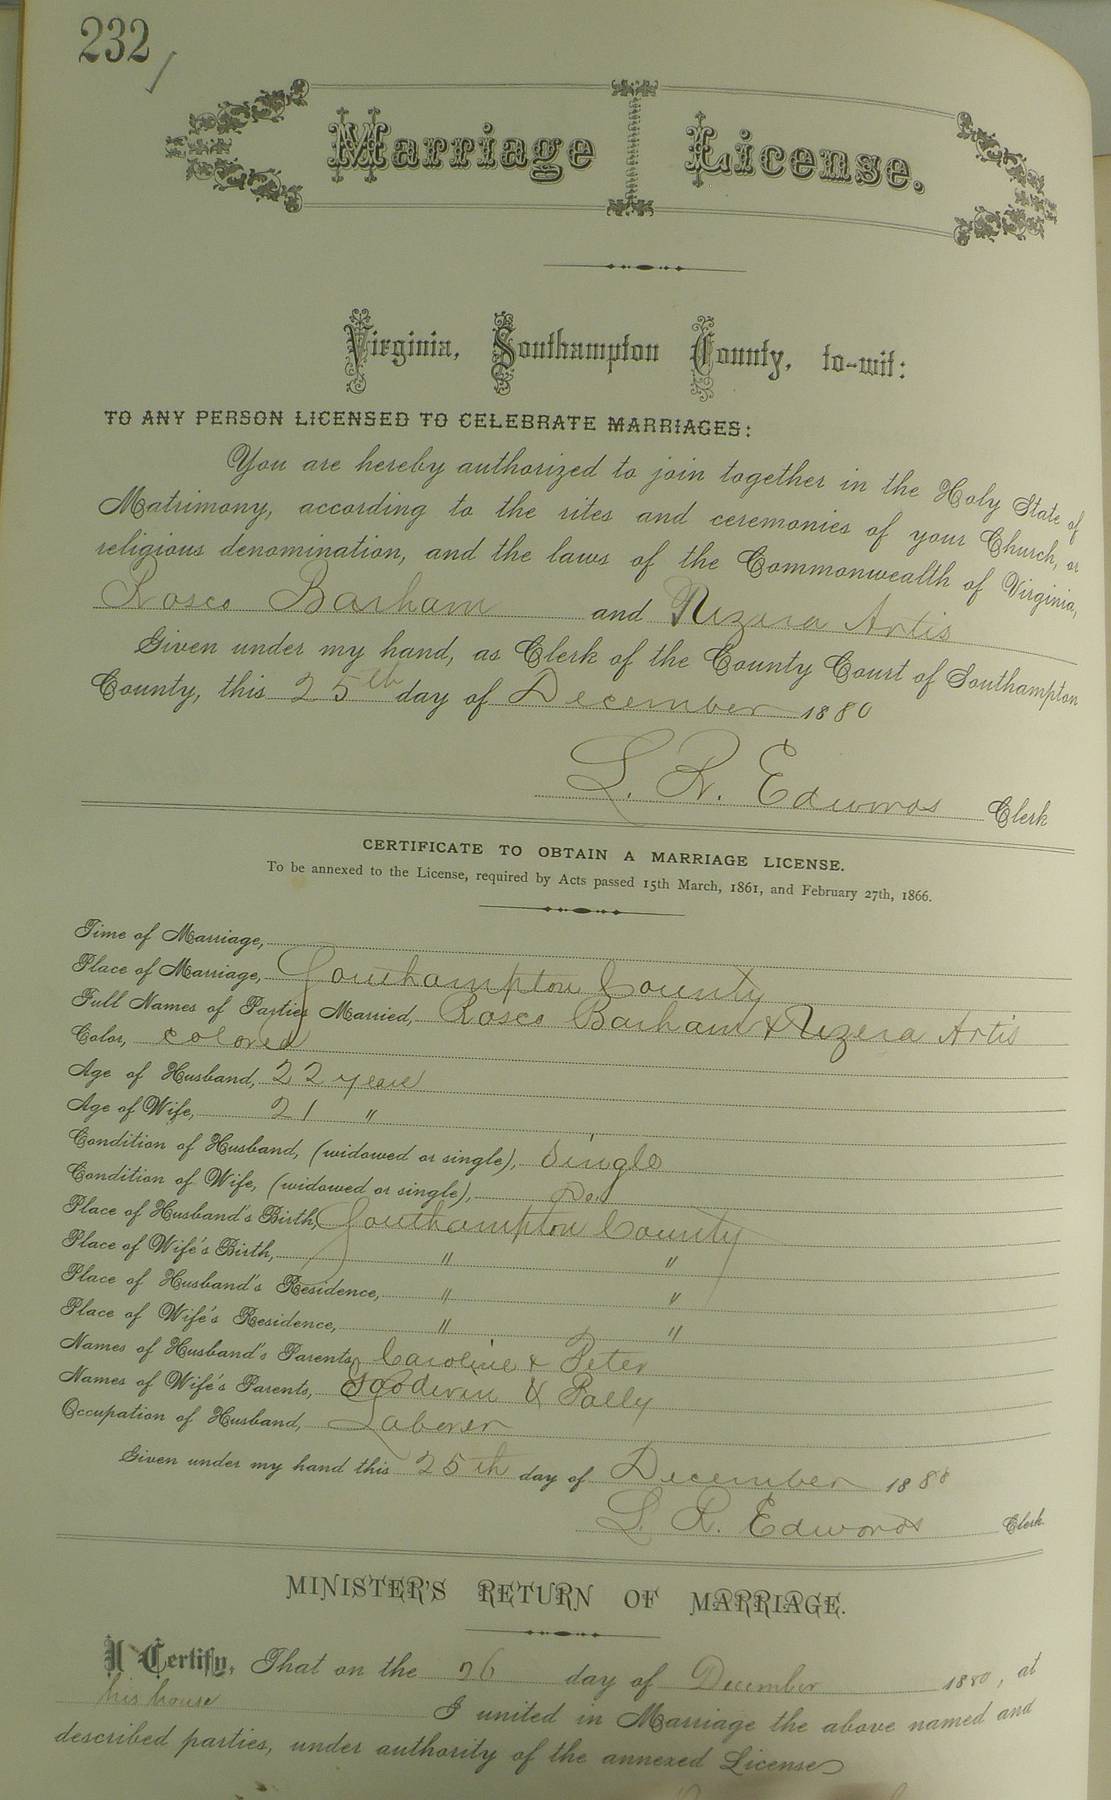 232
Marriage License.
Virginia, Southampton County, to-wit:
TO ANY PERSON LICENSED TO CELEBRATE MARRIAGES:
You are hereby authorized to join together in the Holy State of
Matrimony, according to the rites and ceremonies of your Church, or
religious denomination, and the laws of the Commonwealth of Virginia,
Rosco Barham and Nizera Artis
Given under my hand, as Clerk of the County Court of Southampton
County, this 25th day of December 1880
L. R. Edwards Clerk
CERTIFICATE TO OBTAIN A MARRIAGE LICENSE.
To be annexed to the License, required by Acts passed 15th March, 1861, and February 27th, 1866.
Time of Marriage,
Place of Marriage, Southampton County
Full Names of Parties Married, Rosco Barham & Nizera Artis
Color, colored
Age of Husband, 22 years
Age of Wife, 21 "
Condition of Husband, (widowed or single), Single
Condition of Wife, (widowed or single), Do.
Place of Husband's Birth, Southampton County
Place of Wife's Birth, " "
Place of Husband's Residence, " "
Place of Wife's Residence, " "
Names of Husband's Parents, Caroline & Peter
Names of Wife's Parents, Goodwin & Polly
Occupation of Husband, Laborer
Given under my hand this 25th day of December 1880
L. R. Edwards Clerk
MINISTER'S RETURN OF MARRIAGE.
I Certify, That on the 26 day of December 1880, at
his house I united in Marriage the above named and
described parties, under authority of the annexed License